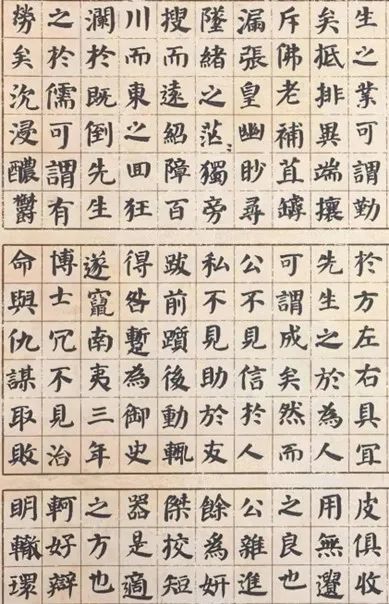 生之業可謂勤
矣抵排異端攘
斥佛老補苴罅
漏張皇幽眇尋
墜緒之茫〻獨旁
搜而遠紹障百
川而東之回狂
瀾於既倒先生
之於儒可謂有
勞矣沉浸醲鬱
於方左右具宜
先生之於為人
可謂成矣然而
公不見信於人
私不見助於友
跋前躓後動輒
得咎蹔為御史
遂竄南夷三年
博士冗不見治
命與仇謀取敗
皮俱收
用無遺
之良也
公雜進
餘為妍
傑挍短
器是適
之方也
軻好辯
明轍環